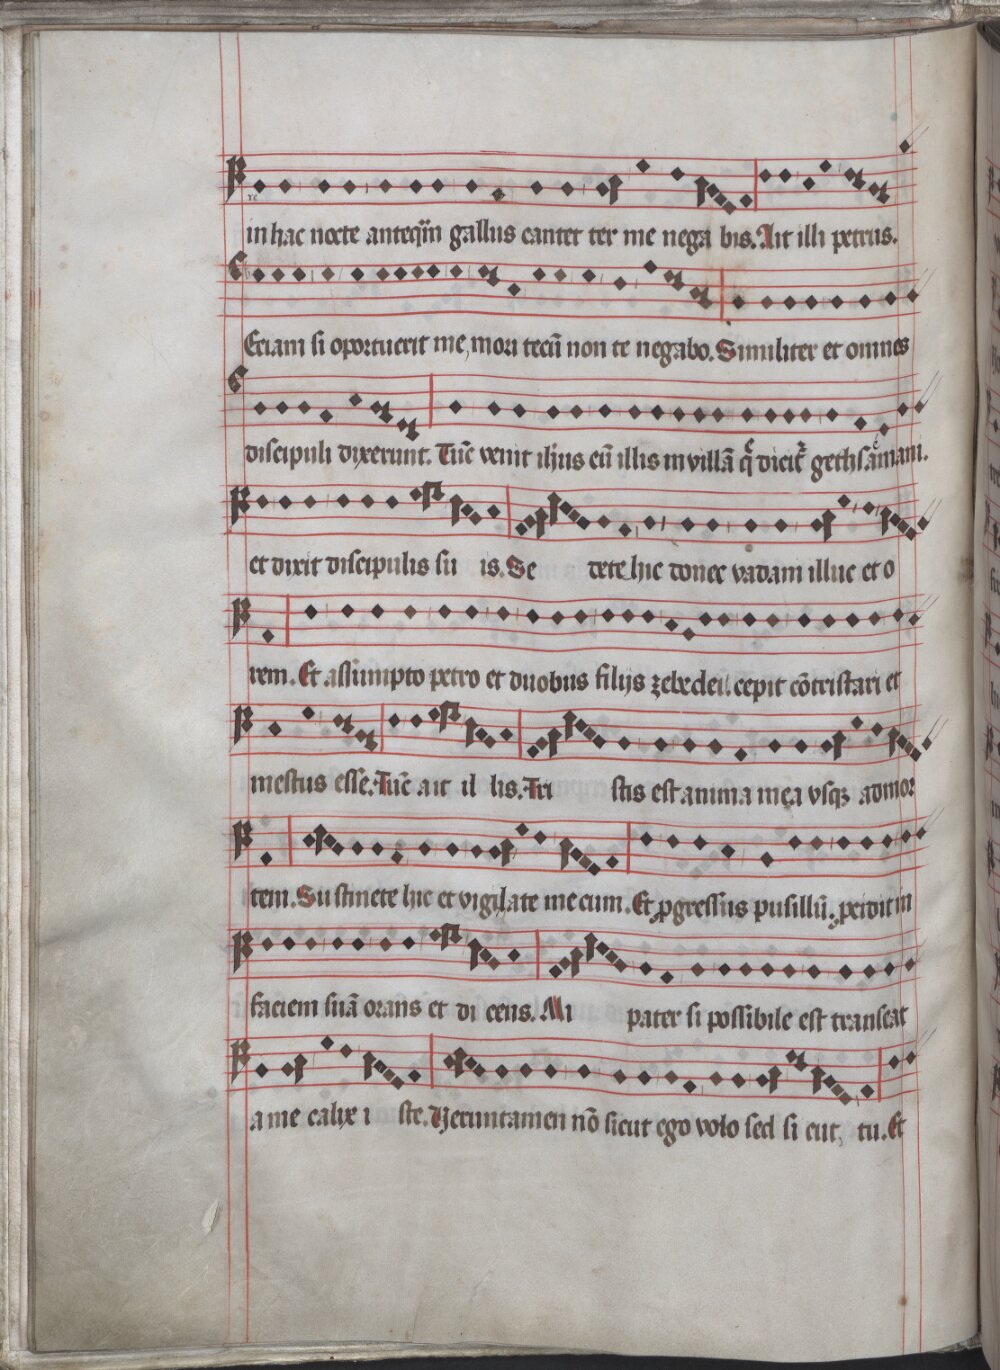 in hac nocte anteqm̄ gallus cantet ter me nega bis. Ait illi petrus.
Eciam si oportuerit me mori tecū non te negabo. Similiter et omnes
discipuli dixerunt. Tūc venit ihus cū illis in villā q̄ dicit̄ gethsemani.
et dixit discipulis su is. Se dete hic donec vadam illuc et o
rem. Et assumpto petro et duobus filijs zebedei. cepit cōtristari et
mestus esse. Tūc ait il lis. Tri stis est anima mea vsqꝫ ad mor
tem. Su stinete hic et vigilate me cum. Et ꝓgressus pusillū. ꝓcidit in
faciem suā orans et di cens. Mi pater si possibile est transeat
a me calix i ste. Verumtamen nō sicut ego volo sed si cut tu. Et